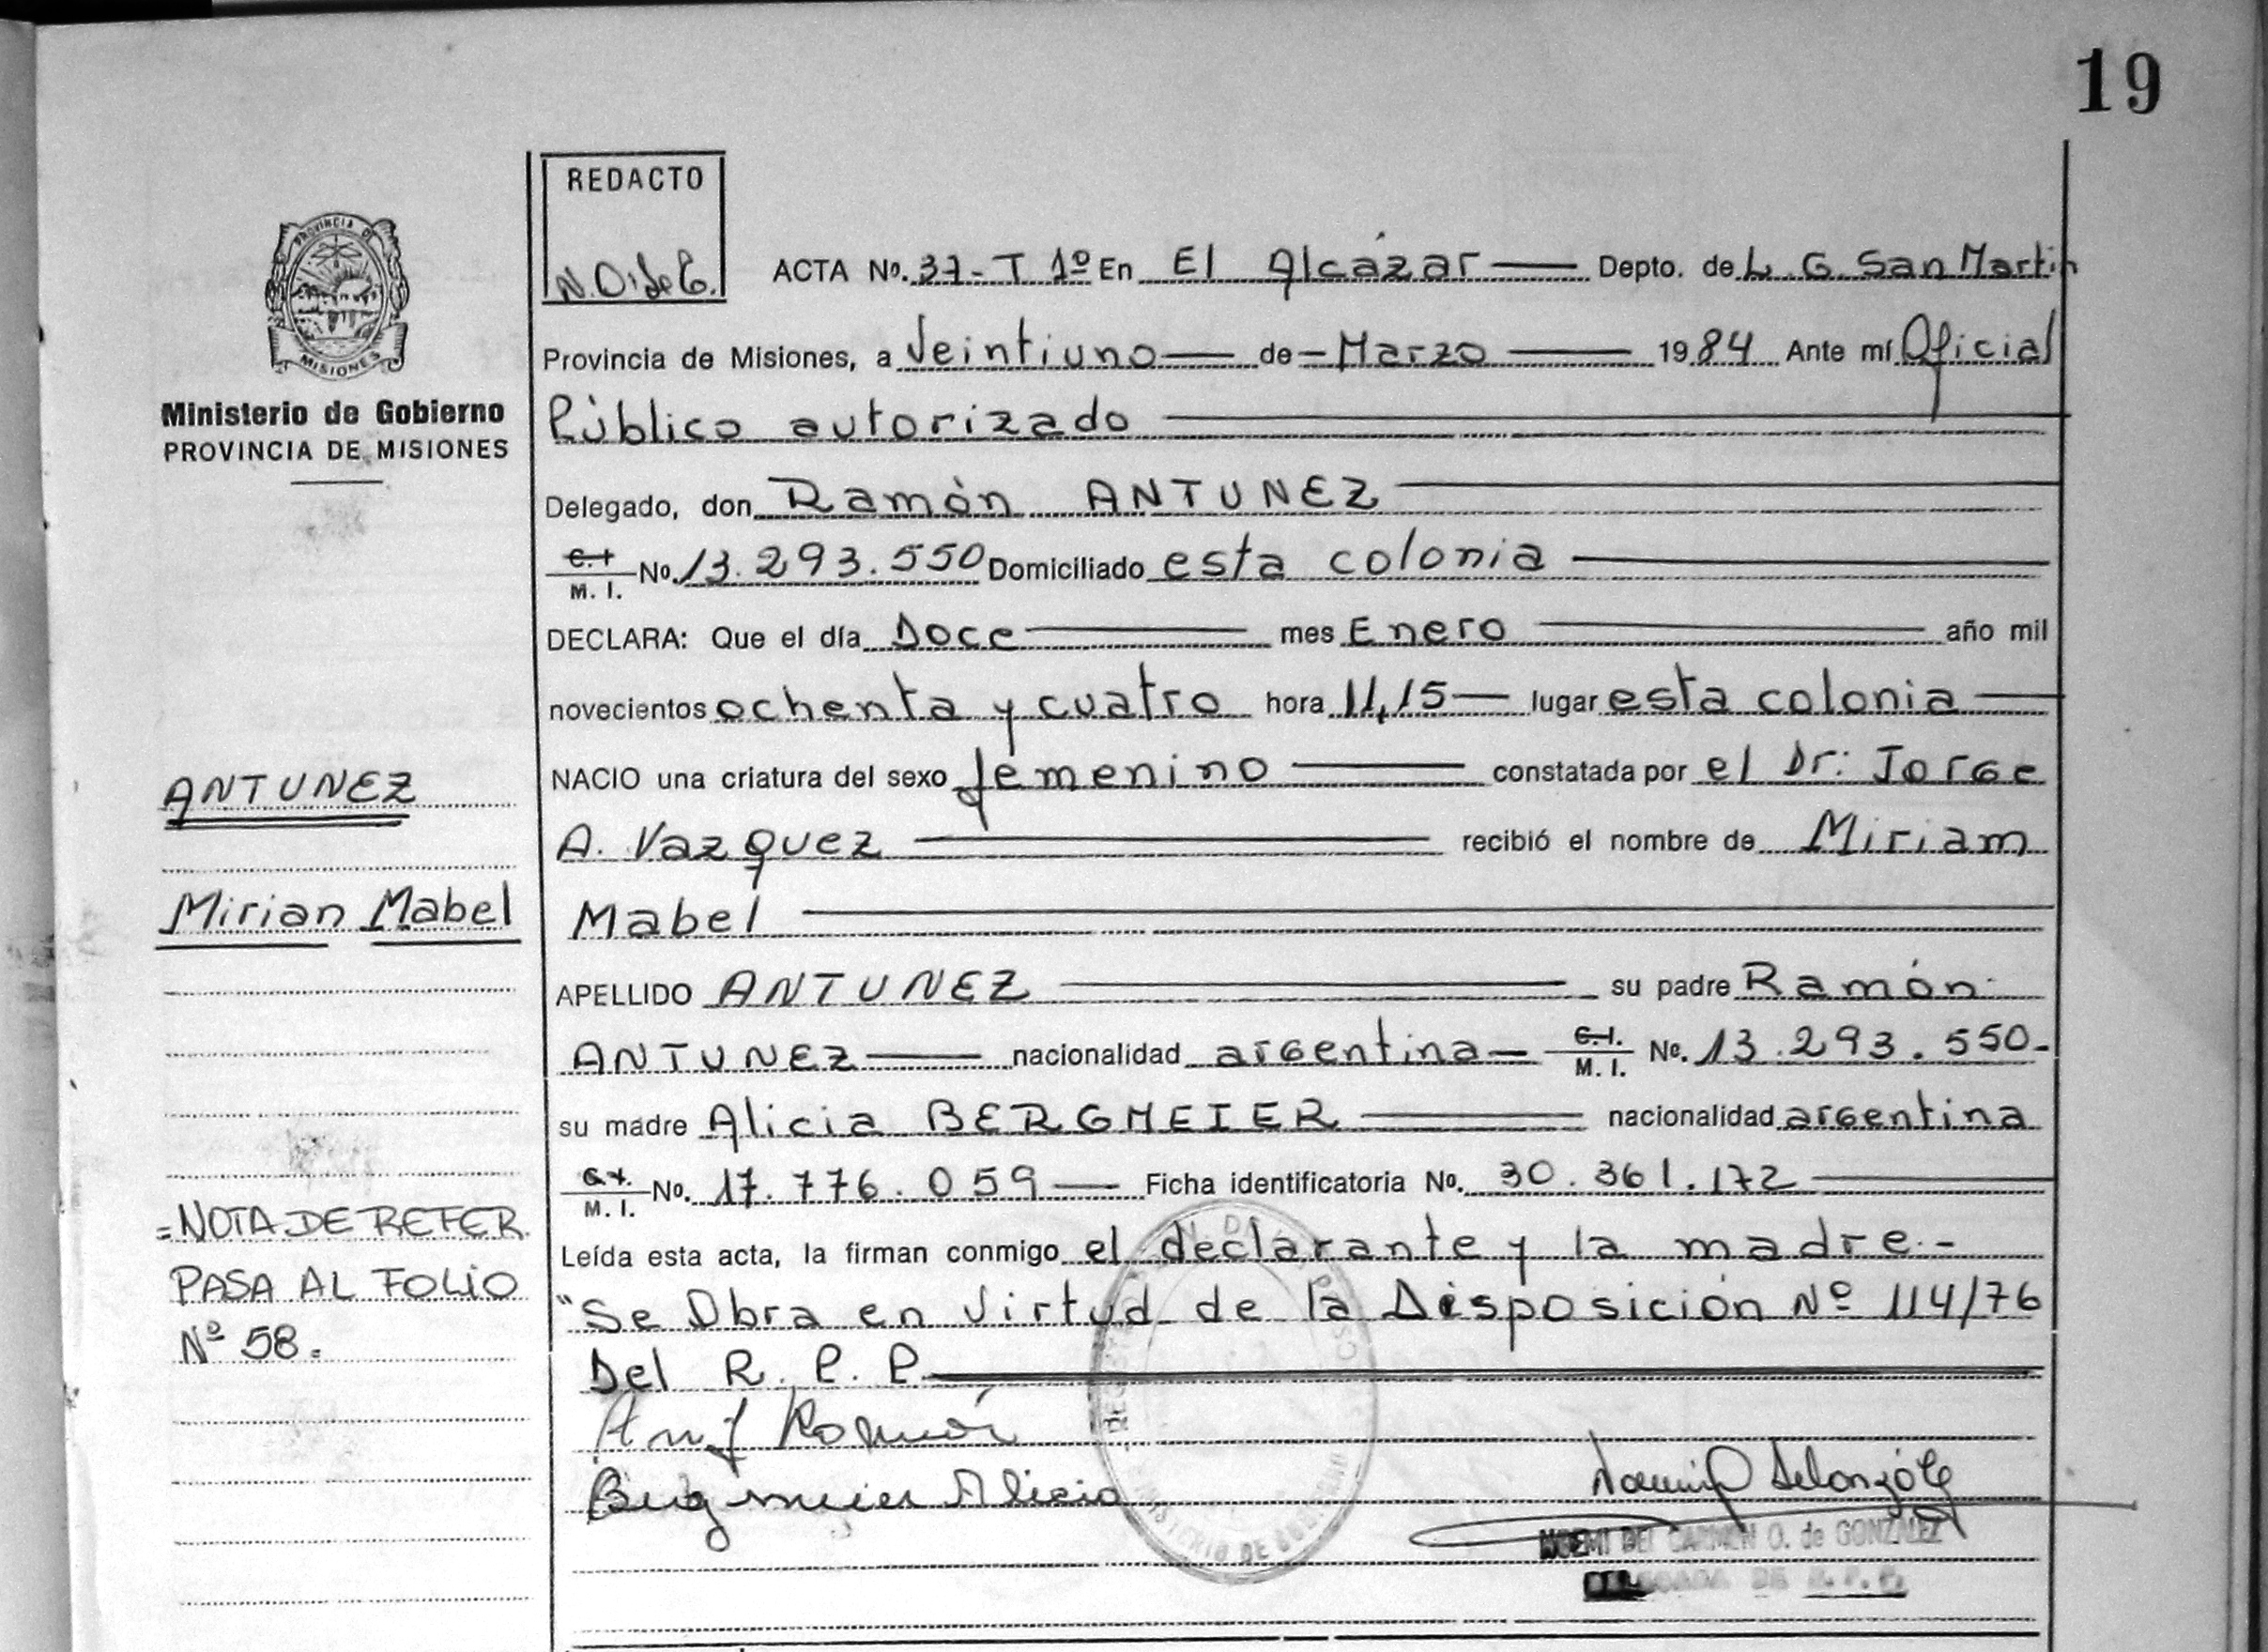 19
REDACTO
N.O. de G.
PROVINCIA DE
MISIONES
Ministerio de Gobierno
PROVINCIA DE MISIONES
ACTA No. 37-T 1º En El Alcázar Depto. de L. G. San Martin
Provincia de Misiones, a Veintiuno de Marzo 1984 Ante mí Oficial
Público autorizado
Delegado, don Ramón ANTUNEZ
C.I. M. I. No. 13.293.550 Domiciliado esta colonia
DECLARA: Que el día Doce mes Enero año mil
novecientos ochenta y cuatro hora 11,15 lugar esta colonia
NACIO una criatura del sexo femenino constatada por el Dr: Jorge
A. Vazquez recibió el nombre de Miriam
Mabel
APELLIDO ANTUNEZ su padre Ramón
ANTUNEZ nacionalidad argentina C.I. M. I. No. 13.293.550.
su madre Alicia BERGMEIER nacionalidad argentina
C.I. M. I. No. 17.776.059 Ficha identificatoria No. 30.361.172
Leída esta acta, la firman conmigo el declarante y la madre.-
"Se Obra en Virtud de la Disposición Nº 114/76
Del R. P. P.
ANTUNEZ
Mirian Mabel
=NOTA DE REFER.
PASA AL FOLIO
Nº 58.
Bergmeier Alicia
MINISTERIO DE GOBIERNO
NOEMI DEL CARMEN O. de GONZALEZ
DELEGADA DE R. P. P.